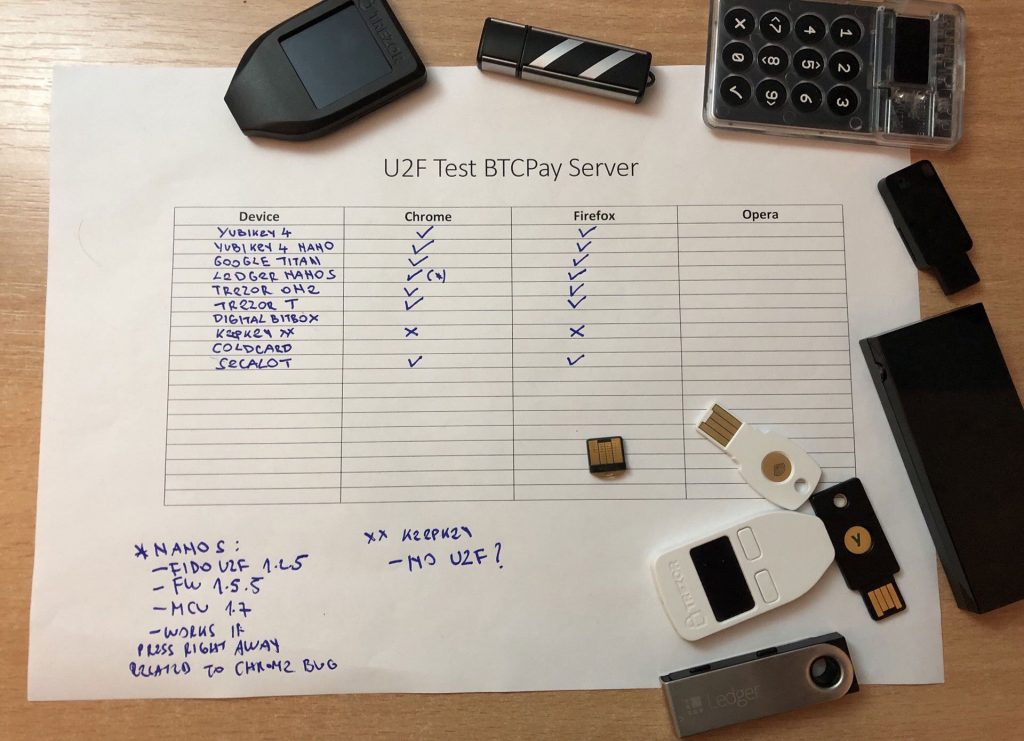 TREZOR
X 0 ✓
<7 <8 9>
4 5> 6
1 2 3
U2F Test BTCPay Server
Device Chrome Firefox Opera
YUBIKEY 4 ✓ ✓
YUBIKEY 4 NANO ✓ ✓
GOOGLE TITAN ✓ ✓
LEDGER NANO S ✓(*) ✓
TREZOR ONE ✓ ✓
TREZOR T ✓ ✓
DIGITAL BITBOX
KEEPKEY ** × ×
COLDCARD
SECALOT ✓ ✓
* NANO S:
– FIDO U2F 1.2.5
– FW 1.5.5
– MCU 1.7
– WORKS IF
PRESS RIGHT AWAY
RELATED TO CHROME BUG
** KEEPKEY
– NO U2F?
TREZOR
Y
Ledger